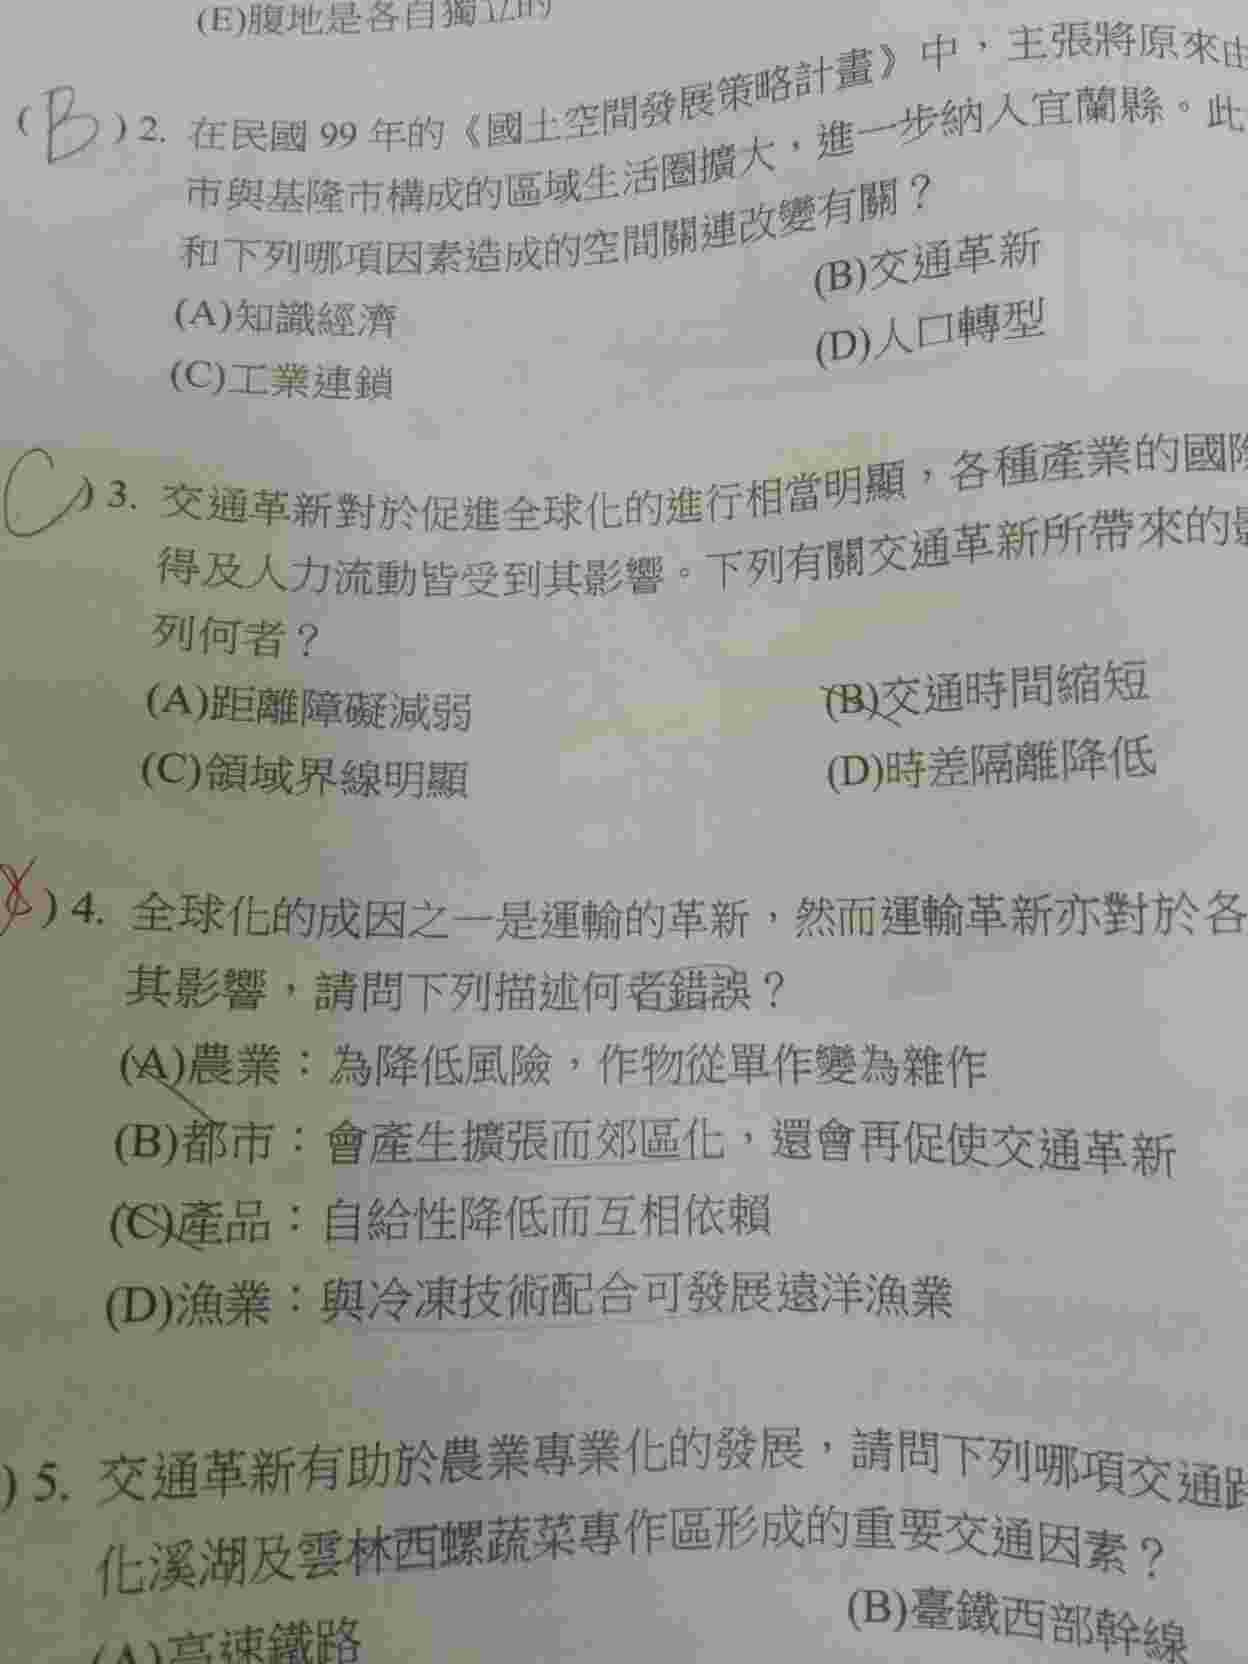 (E)腹地是各自獨立的
(B) 2. 在民國 99 年的《國土空間發展策略計畫》中，主張將原來由
市與基隆市構成的區域生活圈擴大，進一步納入宜蘭縣。此
和下列哪項因素造成的空間關連改變有關？
(A)知識經濟
(B)交通革新
(C)工業連鎖
(D)人口轉型
C) 3. 交通革新對於促進全球化的進行相當明顯，各種產業的國際
得及人力流動皆受到其影響。下列有關交通革新所帶來的影
列何者？
(A)距離障礙減弱
(B)交通時間縮短
(C)領域界線明顯
(D)時差隔離降低
) 4. 全球化的成因之一是運輸的革新，然而運輸革新亦對於各
其影響，請問下列描述何者錯誤？
(A)農業：為降低風險，作物從單作變為雜作
(B)都市：會產生擴張而郊區化，還會再促使交通革新
(C)產品：自給性降低而互相依賴
(D)漁業：與冷凍技術配合可發展遠洋漁業
) 5. 交通革新有助於農業專業化的發展，請問下列哪項交通路
化溪湖及雲林西螺蔬菜專作區形成的重要交通因素？
(A)高速鐵路
(B)臺鐵西部幹線